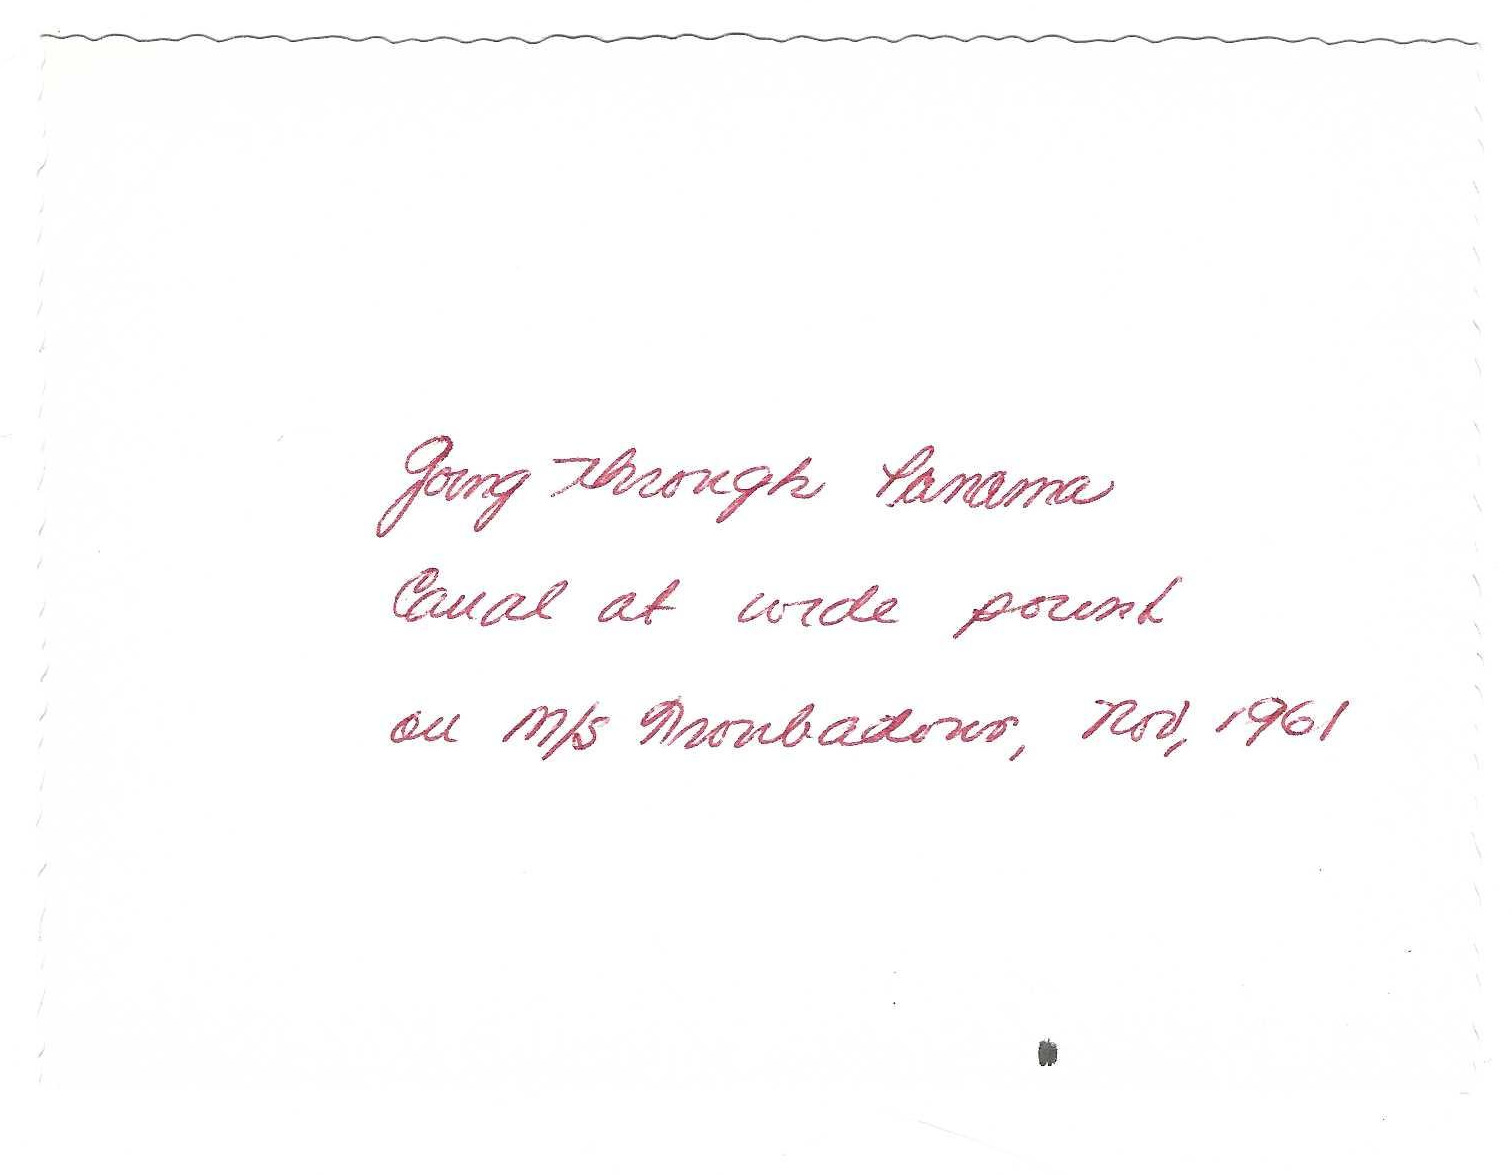 Going Through Panama
Canal at wide point
on M/S Troubadour, Nov, 1961